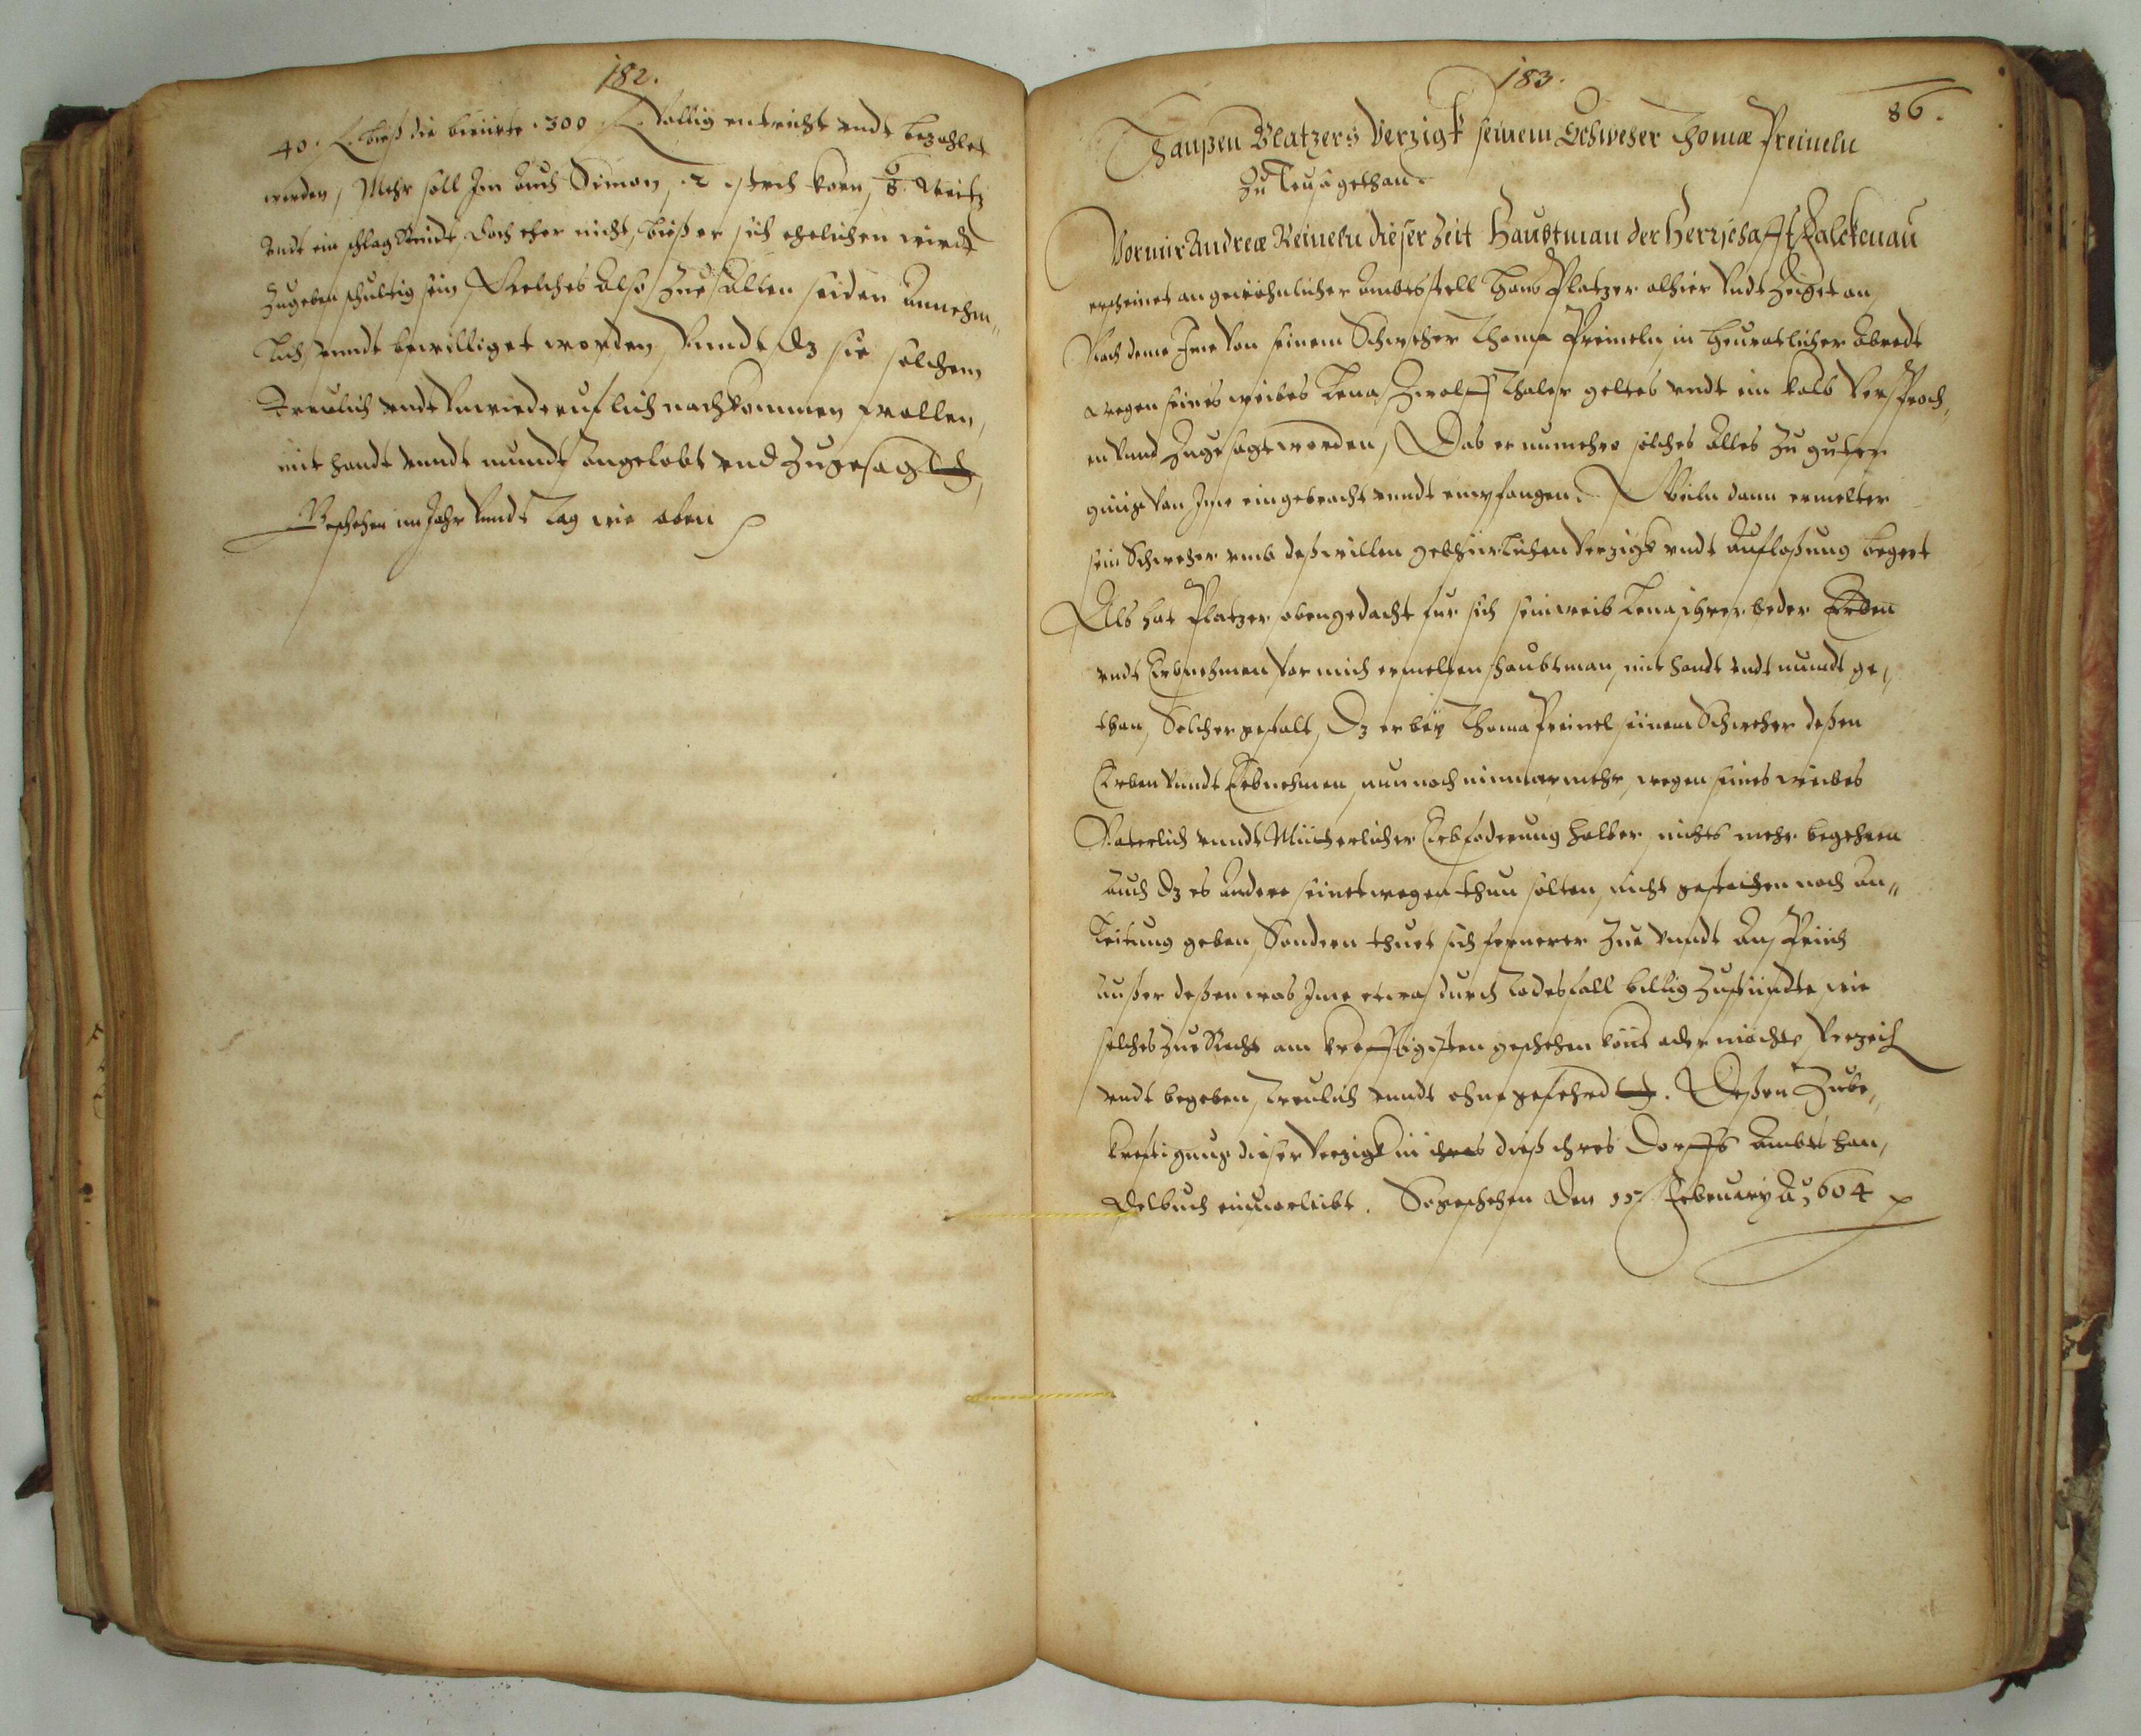 182.
40. f. bieß die beruerte .300. f. Vollig entricht undt bezahlet
werden, Mehr soll Im auch Simon, .2. strich korn, 6/8. Weitz
undt ein schlag Rindt, doch eher nicht, bieß er sich ehelichen wirdt
zugeben schultig sein, Welches also zue allen seiden annehm„
lich, unndt bewilliget worden, Vnndt dz sie solchem
Treulich undt Vnwiederuflich nachkommen wollen,
mit handt unndt mundt angelobt und zugesagt
Geschehen im Jahr Vnndt tag wie oben
183.
86.
Hanßen Platzers Verzigk seinem Schweher Thomæ Preineln
zu gethan.
Vor mir Andreæ Reineln dieser Zeit Haubtman der Herrschafft Falckenau
erscheinet an gewöhnlicher Ambtsstell Hans Platzer alhier Vndt Zeiget an,
Nach deme Ime Von seinem Schweher Thoma Preineln, in heuratlicher abredt
wegen seines weibes Lena, Zwolff thaler geltes undt ein kalb Versproch„
en Vnnd zugesagt worden, Das er nunmehro solches alles zu guter
gnüge Von Ime eingebracht unndt empfangen. Weiln dann ermelter
sein Schweher umb deßwillen gebhürlichen Verzigk undt Aufloßung begert
Als hat Platzer obengedacht fur sich sein weib Lena ihrer beder Erben
undt Erbnehmen Vor mich ermelten Haubtman, mit handt undt mundt ge„
than, Solcher gestalt, Dz er bey Thoma Preinel seinem Schweher deßen
Erben Vnndt Erbnehmen, nun noch nimmermehr, wegen seines weibes
Vaterlich unndt Mütterlicher Erbfoderung halber nichts mehr begehren
auch dz es andere seinetwegen thun solten, nicht gestathen noch an„
leitung geben, Sondern thuet sich fernerer Zue Vnndt Anspruch
außer deßen was Ime etwas durch Todesfall billig Zustündte, wie
solches zue Recht am krefftigisten geschehen kont oder möchte Verzeich
undt begeben, treulich unndt ohne gefehrd. Deßen Zube„
krefftigung dieser Verzigk in dieß ihres Dorffs Ambts han„
delbuch einuorleibt. So geschehen Den February Aō 604